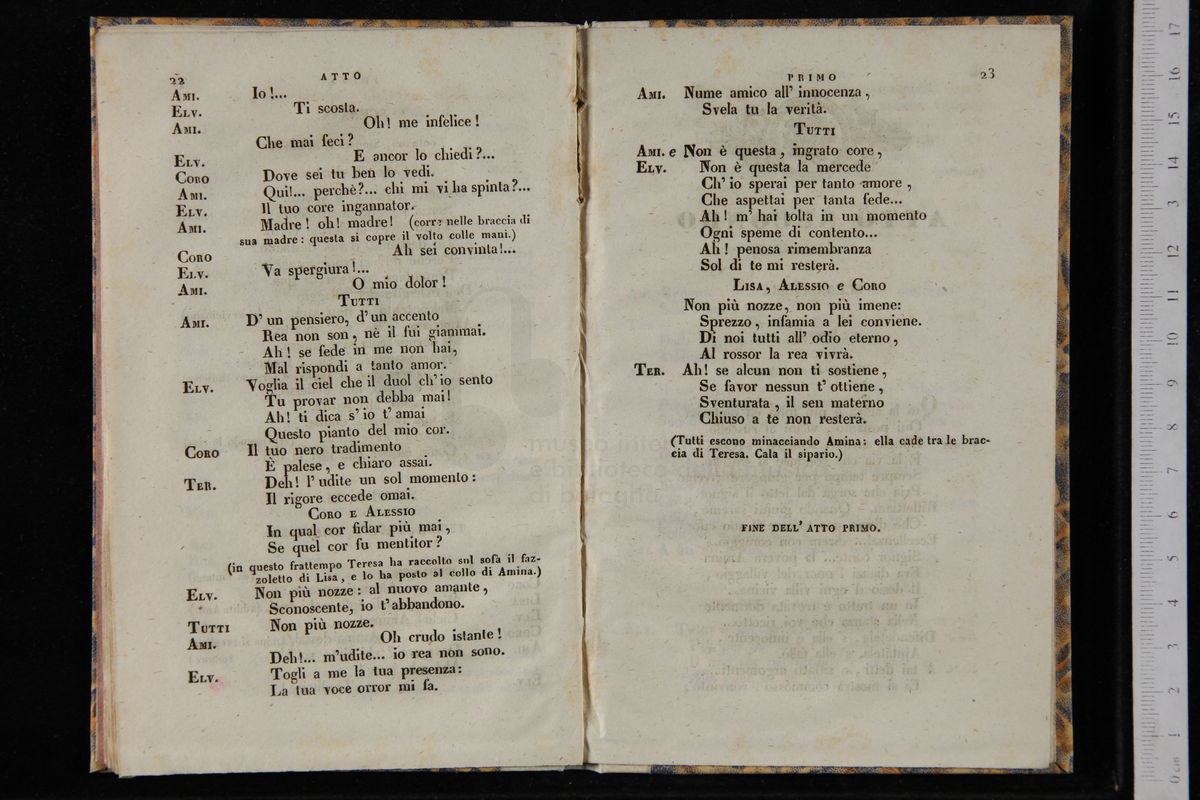 22 ATTO
AMI. Io!...
ELV. Ti scosta.
AMI. Oh! me infelice!
Che mai feci?
ELV. E ancor lo chiedi?...
CORO Dove sei tu ben lo vedi.
AMI. Qui!... perchè?... chi mi vi ha spinta?...
ELV. Il tuo core ingannator.
AMI. Madre! oh! madre! (corre nelle braccia di
sua madre: questa si copre il volto colle mani.)
CORO Ah sei convinta!...
ELV. Va spergiura!...
AMI. O mio dolor!
TUTTI
AMI. D' un pensiero, d' un accento
Rea non son, nè il fui giammai.
Ah! se fede in me non hai,
Mal rispondi a tanto amor.
ELV. Voglia il ciel che il duol ch' io sento
Tu provar non debba mai!
Ah! ti dica s' io t' amai
Questo pianto del mio cor.
CORO Il tuo nero tradimento
È palese, e chiaro assai.
TER. Deh! l' udite un sol momento:
Il rigore eccede omai.
CORO E ALESSIO
In qual cor fidar più mai,
Se quel cor fu mentitor?
(in questo frattempo Teresa ha raccolto sul sofà il faz-
zoletto di Lisa, e lo ha posto al collo di Amina.)
ELV. Non più nozze: al nuovo amante,
Sconoscente, io t' abbandono.
TUTTI Non più nozze.
AMI. Oh crudo istante!
Deh!... m'udite... io rea non sono.
ELV. Togli a me la tua presenza:
La tua voce orror mi fa.
PRIMO 23
AMI. Nume amico all' innocenza,
Svela tu la verità.
TUTTI
AMI. e Non è questa, ingrato core,
ELV. Non è questa la mercede
Ch' io sperai per tanto amore,
Che aspettai per tanta fede...
Ah! m' hai tolta in un momento
Ogni speme di contento...
Ah! penosa rimembranza
Sol di te mi resterà.
LISA, ALESSIO e CORO
Non più nozze, non più imene:
Sprezzo, infamia a lei conviene.
Di noi tutti all' odio eterno,
Al rossor la rea vivrà.
TER. Ah! se alcun non ti sostiene,
Se favor nessun t' ottiene,
Sventurata, il sen materno
Chiuso a te non resterà.
(Tutti escono minacciando Amina: ella cade tra le brac-
cia di Teresa. Cala il sipario.)
FINE DELL' ATTO PRIMO.